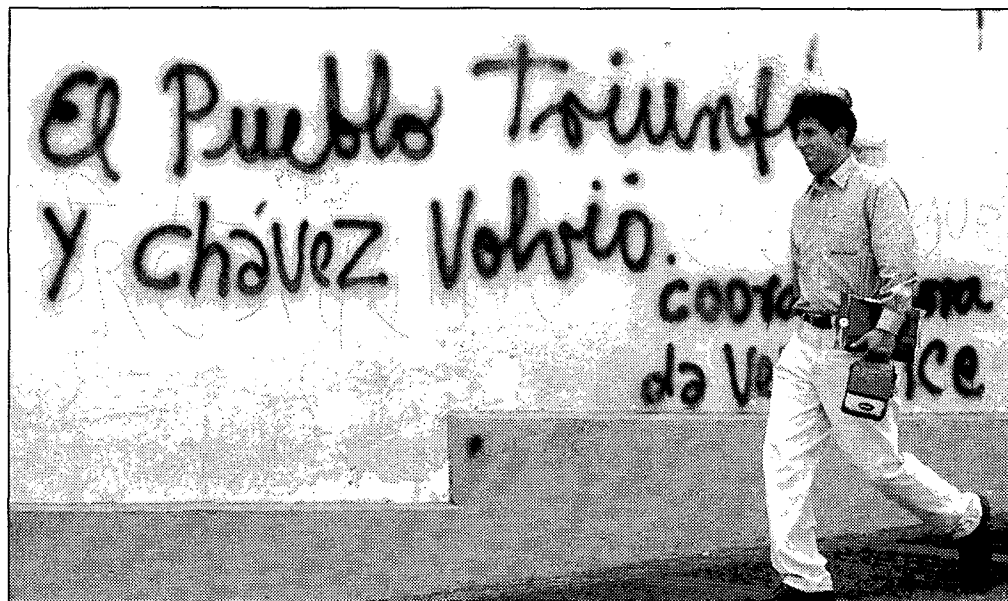 El Pueblo Triunf
Y Chávez Volvió.
coord
da Ve